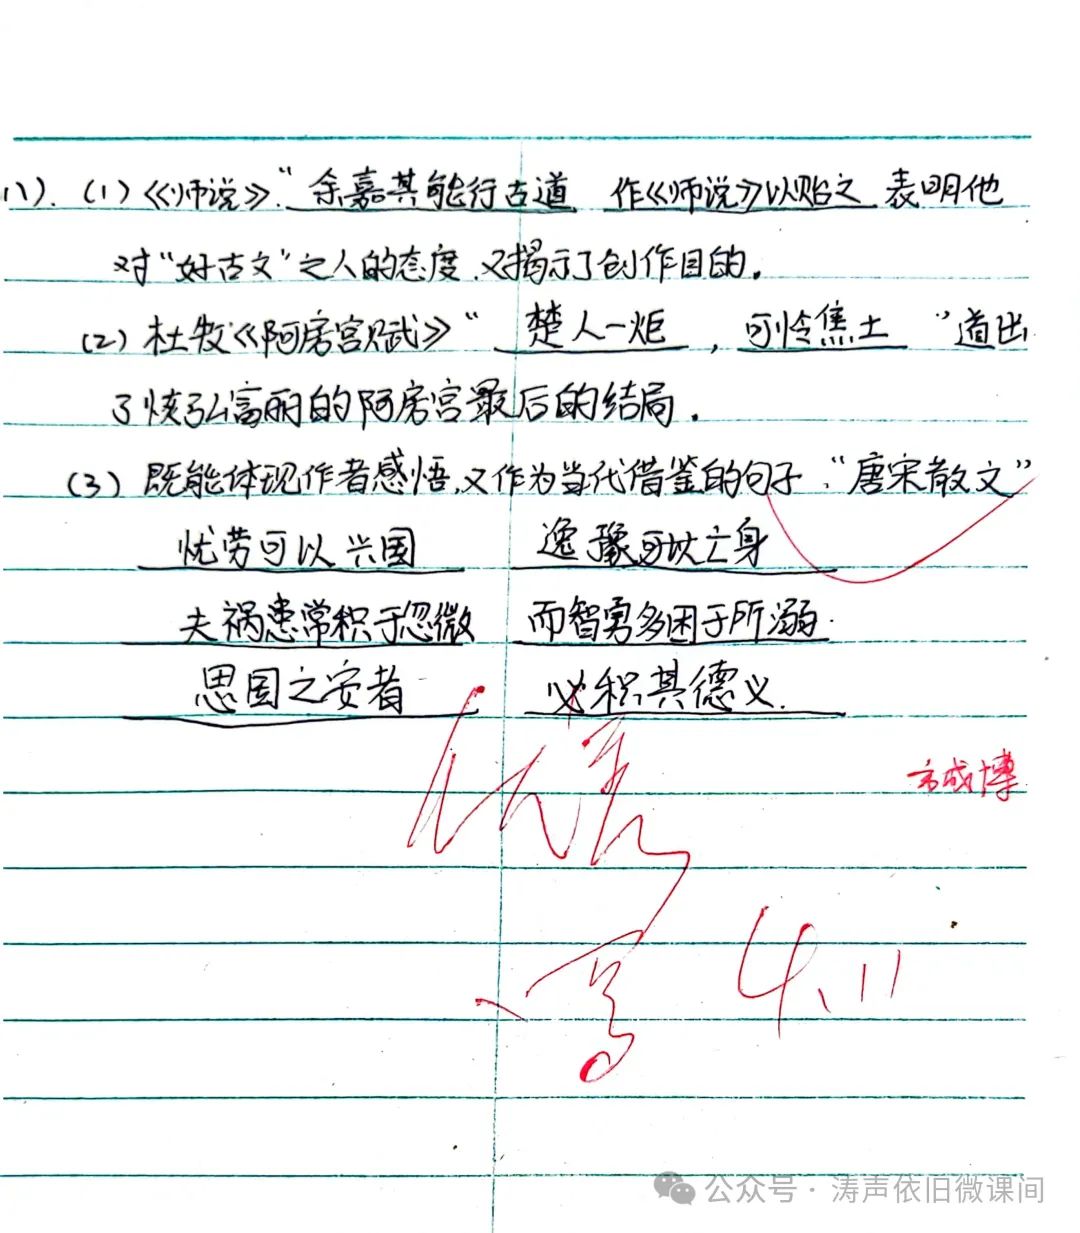 八). (1)《师说》.“余嘉其能行古道 作《师说》以贻之 表明他
对“好古文”之人的态度,又揭示了创作目的。
(2) 杜牧《阿房宫赋》“ 楚人一炬 , 可怜焦土 ”道出
了恢弘富丽的阿房宫最后的结局.
(3) 既能体现作者感悟,又作为当代借鉴的句子,“唐宋散文”
忧劳可以兴国 逸豫可以亡身
夫祸患常积于忽微 而智勇多困于所溺.
思国之安者 必积其德义.
优秀
4.11
公众号·涛声依旧微课间